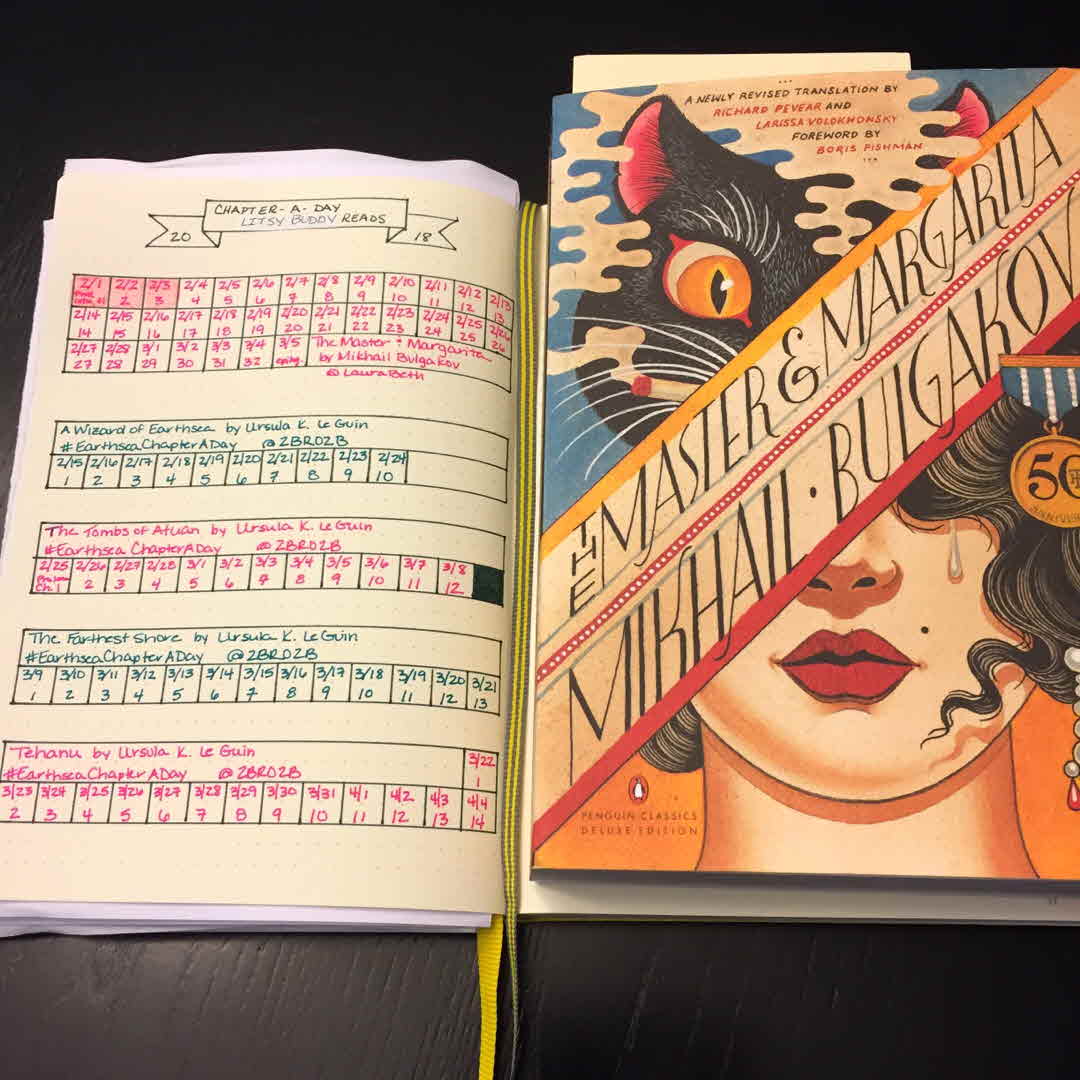 CHAPTER-A-DAY
LITSY BUDDY READS
20 18
2/1 2/2 2/3 2/4 2/5 2/6 2/7 2/8 2/9 2/10 2/11 2/12 2/13
2 3 4 5 6 7 8 9 10 11 12 13
2/14 2/15 2/16 2/17 2/18 2/19 2/20 2/21 2/22 2/23 2/24 2/25 2/26
14 15 16 17 18 19 20 21 22 23 24 25 26
2/27 2/28 3/1 3/2 3/3 3/4 3/5 The Master + Margarita
27 28 29 30 31 32 epilog. by Mikhail Bulgakov
@LauraBeth
A Wizard of Earthsea by Ursula K. Le Guin
#EarthseaChapterADay @2BRO2B
2/15 2/16 2/17 2/18 2/19 2/20 2/21 2/22 2/23 2/24
1 2 3 4 5 6 7 8 9 10
The Tombs of Atuan by Ursula K. Le Guin
#EarthseaChapterADay @2BRO2B
2/25 2/26 2/27 2/28 3/1 3/2 3/3 3/4 3/5 3/6 3/7 3/8
Ch. 1 2 3 4 5 6 7 8 9 10 11 12
The Farthest Shore by Ursula K. Le Guin
#EarthseaChapterADay @2BRO2B
3/9 3/10 3/11 3/12 3/13 3/14 3/15 3/16 3/17 3/18 3/19 3/20 3/21
1 2 3 4 5 6 7 8 9 10 11 12 13
Tehanu by Ursula K. Le Guin 3/22
#EarthseaChapterADay @2BRO2B 1
3/23 3/24 3/25 3/26 3/27 3/28 3/29 3/30 3/31 4/1 4/2 4/3 4/4
2 3 4 5 6 7 8 9 10 11 12 13 14
A NEWLY REVISED TRANSLATION BY
RICHARD PEVEAR AND
LARISSA VOLOKHONSKY
FOREWORD BY
BORIS FISHMAN
THE MASTER & MARGARITA
MIKHAIL · BULGAKOV
50TH
ANNIVERS
PENGUIN CLASSICS
DELUXE EDITION